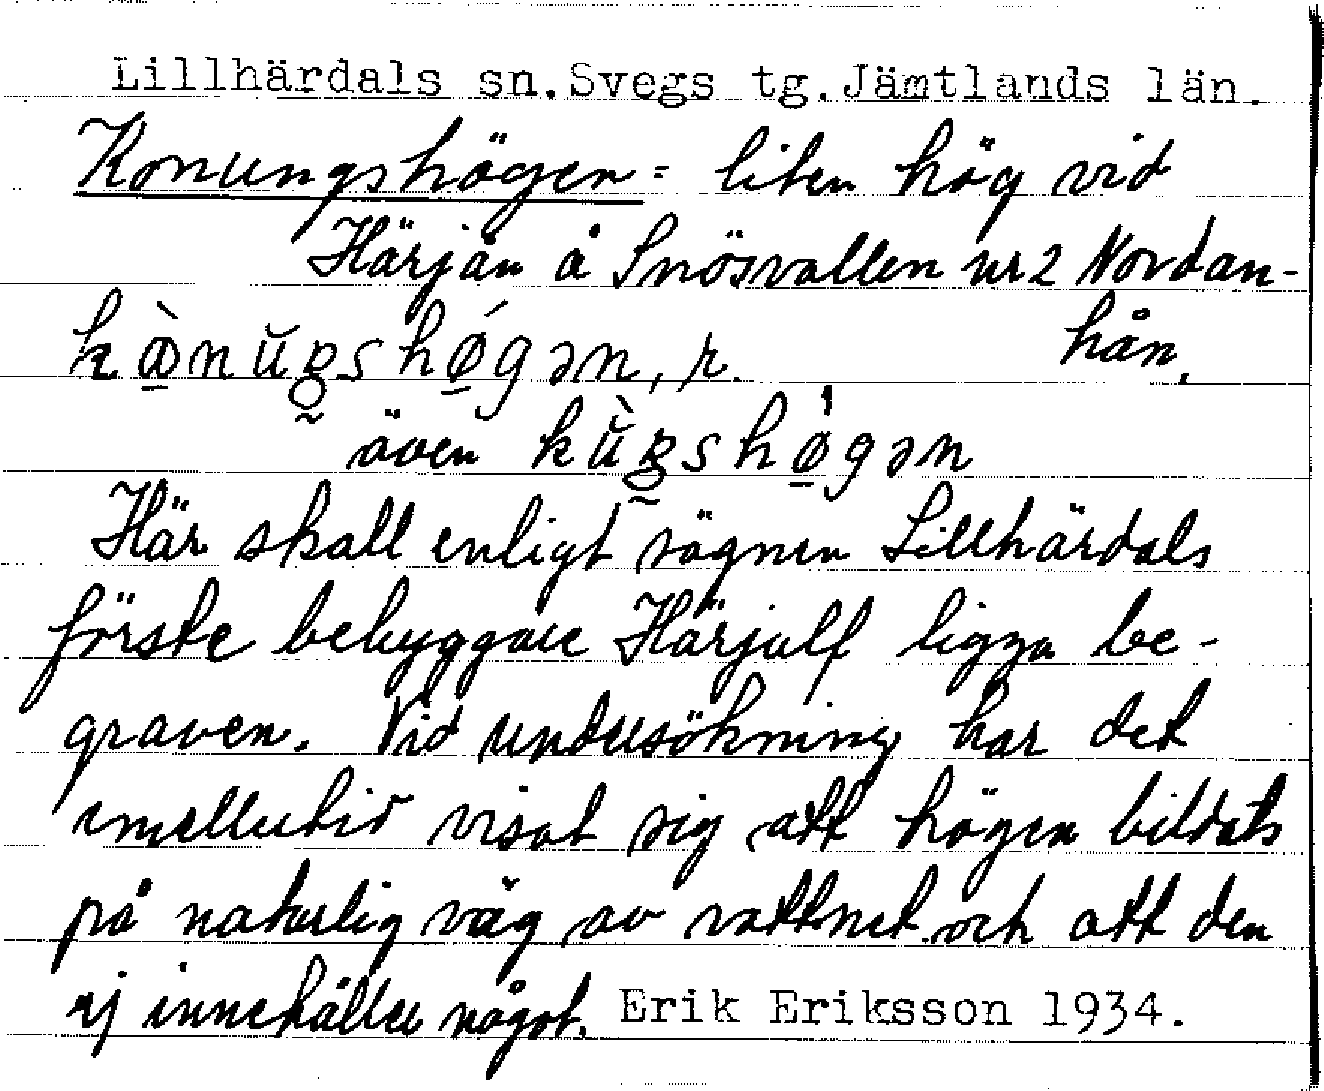 Lillhärdals sn. Svegs tg. Jämtlands län.
Konungshögen = liten hög vid
Härjån å Snösvallen nr 2 Nordan-
hån,
även
Här skall enligt sägnen Lillhärdals
förste bebyggare Härjulf ligga be-
graven. Vid undersökning har det
emellertid visat sig att högen bildats
på naturlig väg av vattnet och att den
ej innehåller något. Erik Eriksson 1934.